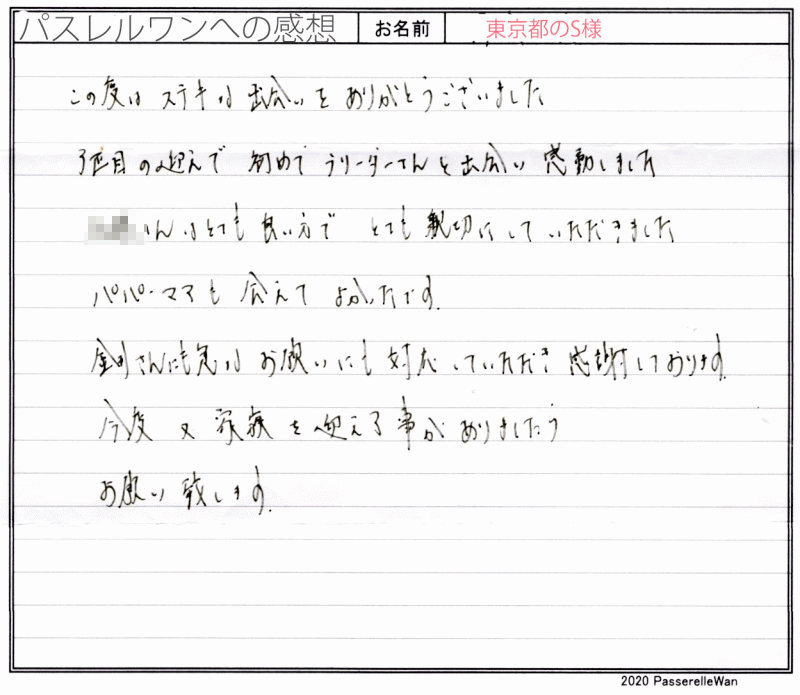 パスレルワンへの感想 お名前 東京都のS様
この度は ステキな 出会いを ありがとうございました
3匹目の迎えで 初めて ブリーダーさんと出会い 感動しました
さんはとても 良い方で とても 親切にしていただきました
パパ・ママも 会えて よかったです。
さんにも急な お願いにも 対応していただき 感謝しております。
今度 又 家族を迎える事が ありましたら
お願い 致します。
2020 PasserelleWan